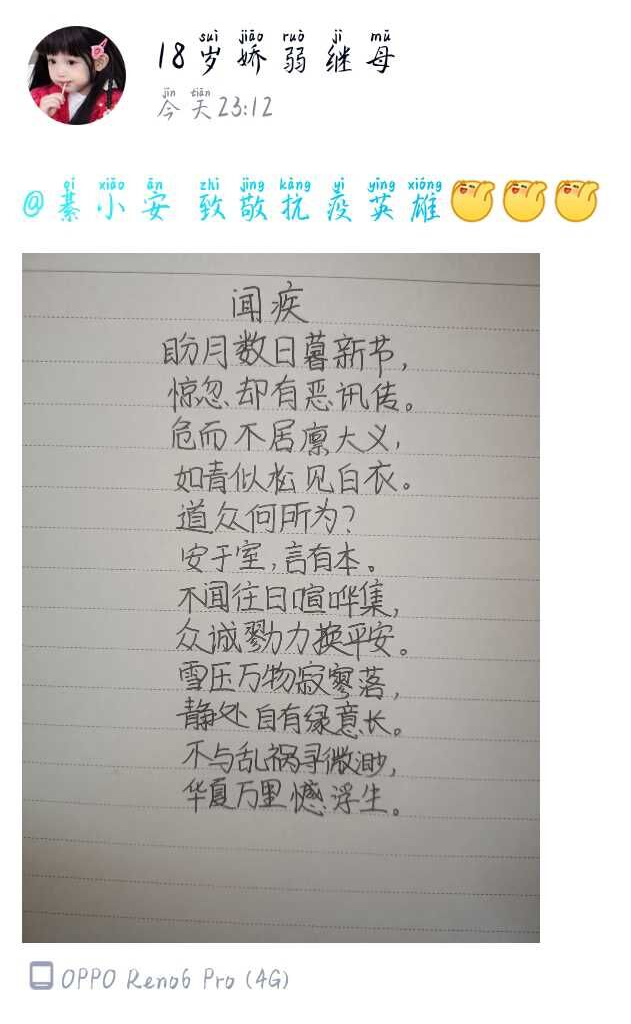 suì jiāo ruò jì mǔ
18岁娇弱继母
jīn tiān
今天23:12
qí xiǎo ān zhì jìng kàng yì yīng xióng
@綦小安 致敬抗疫英雄
闻疾
盼月数日暮新节，
惊忽却有恶讯传。
危而不居凛大义，
如青似松见白衣。
道众何所为？
安于室，言有本。
不闻往日喧哗集，
众诚戮力换平安。
雪压万物寂寥落，
静处自有绿意长。
不与乱祸寻微渺，
华夏万里憾浮生。
OPPO Reno6 Pro (4G)